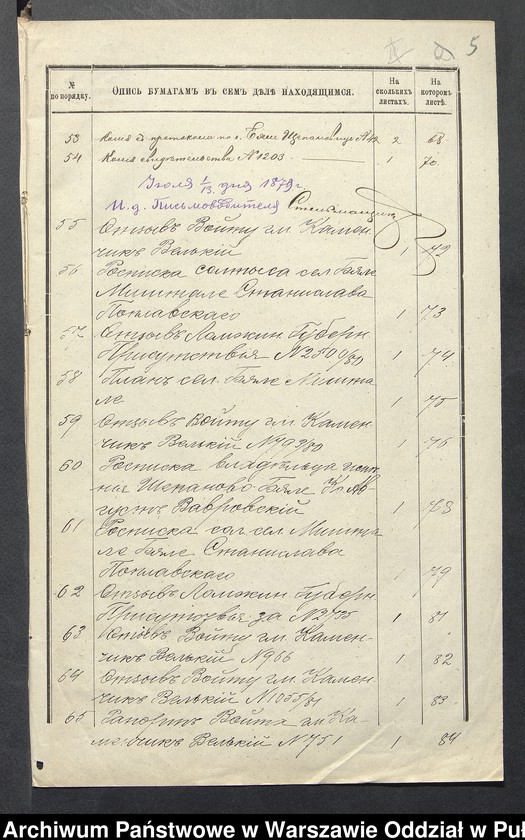 5
№ по порядку.
Опись бумагамъ въ семъ дѣлѣ находящимся.
На сколькихъ листахъ.
На которомъ листѣ.
53 Копія протокола 2 68
54 Копія свидѣтельства №1203 1 70
Іюля 1/13 дня 1879 г.
И. д. Письмоводителя
55 Отзывъ Войту гм. Камен-
чикъ Велькій 1 72
56 Росписка солтыса сел Бяле
Мишталe Станислава
Поплавскаго 1 73
57 Отзывъ Ломжин. Губерн
Присутствья №2500/80 1 74
58 Планъ сел. Бяле Мишта
ле 1 75
59 Отзывъ Войту гм. Камен-
чикъ Велькій №793/80 1 76
60 Росписка владѣльца
Щепаново-Бяле
Вавровскій 1 78
61 Росписка сол. сел Мишта
ле Бяле Станислава
Поплавскаго 1 79
62 Отзывъ Ломжин Губерн
Присутствья за №2735 1 81
63 Отзывъ Войту гм. Камен-
чикъ Велькій №966 1 82
64 Отзывъ Войту гм. Камен-
чикъ Велькій №1055/81 1 83
65 Рапортъ Войта гм Ка-
менчикъ Велькій №751 1 84
Archiwum Państwowe w Warszawie Oddział w Puł